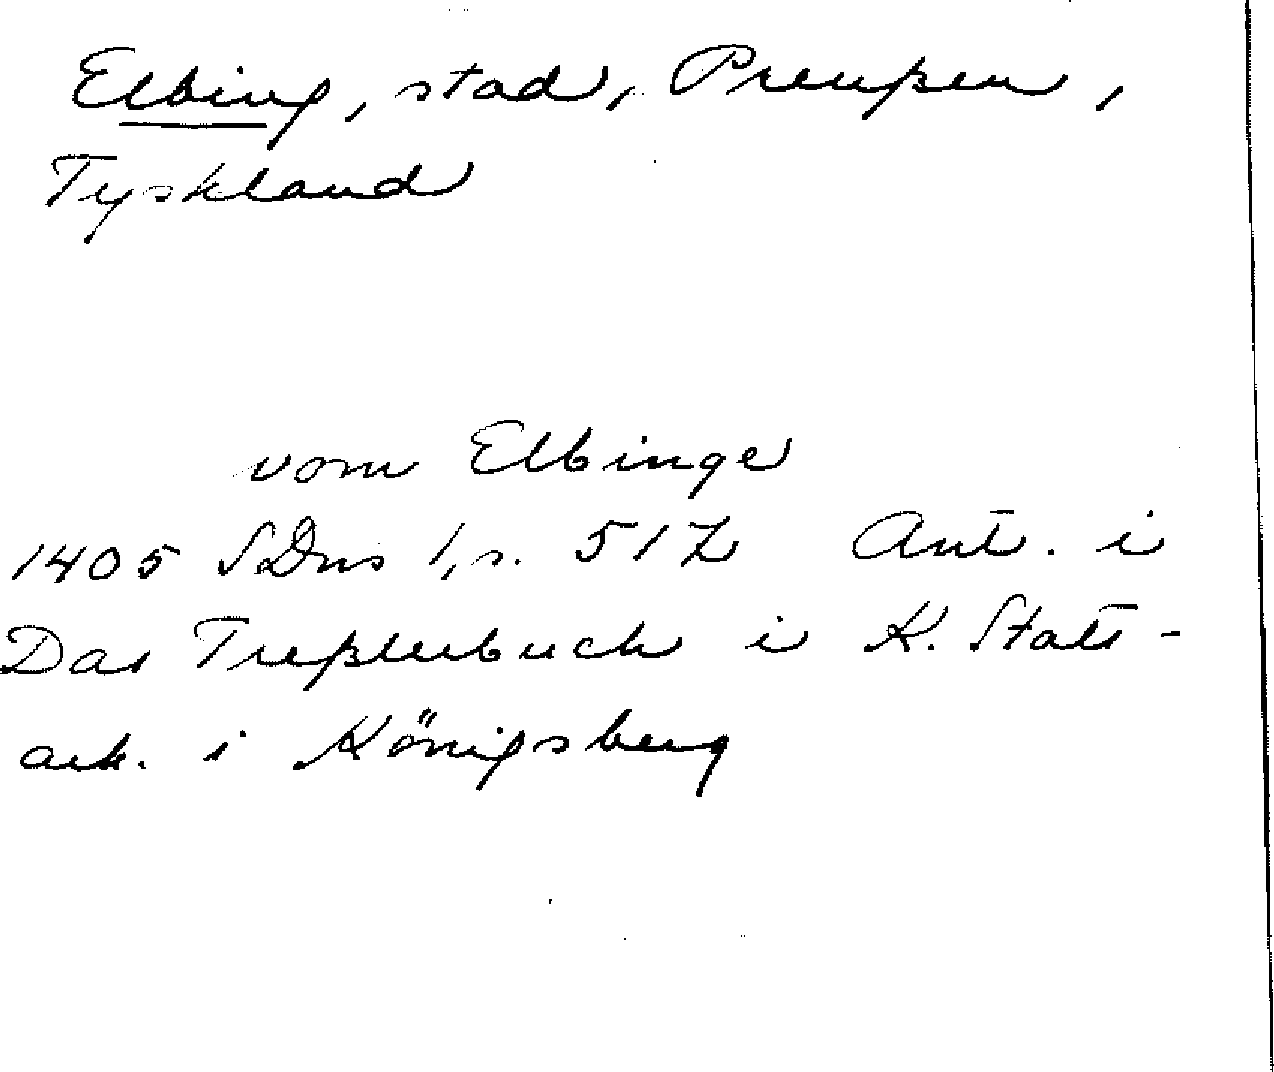 Elbing, stad, Preußen,
Tyskland
vom Elbinge
1405 SDns 1, s. 517 Ant. i
Das Treßlerbuch i K. Stats-
ark. i Königsberg